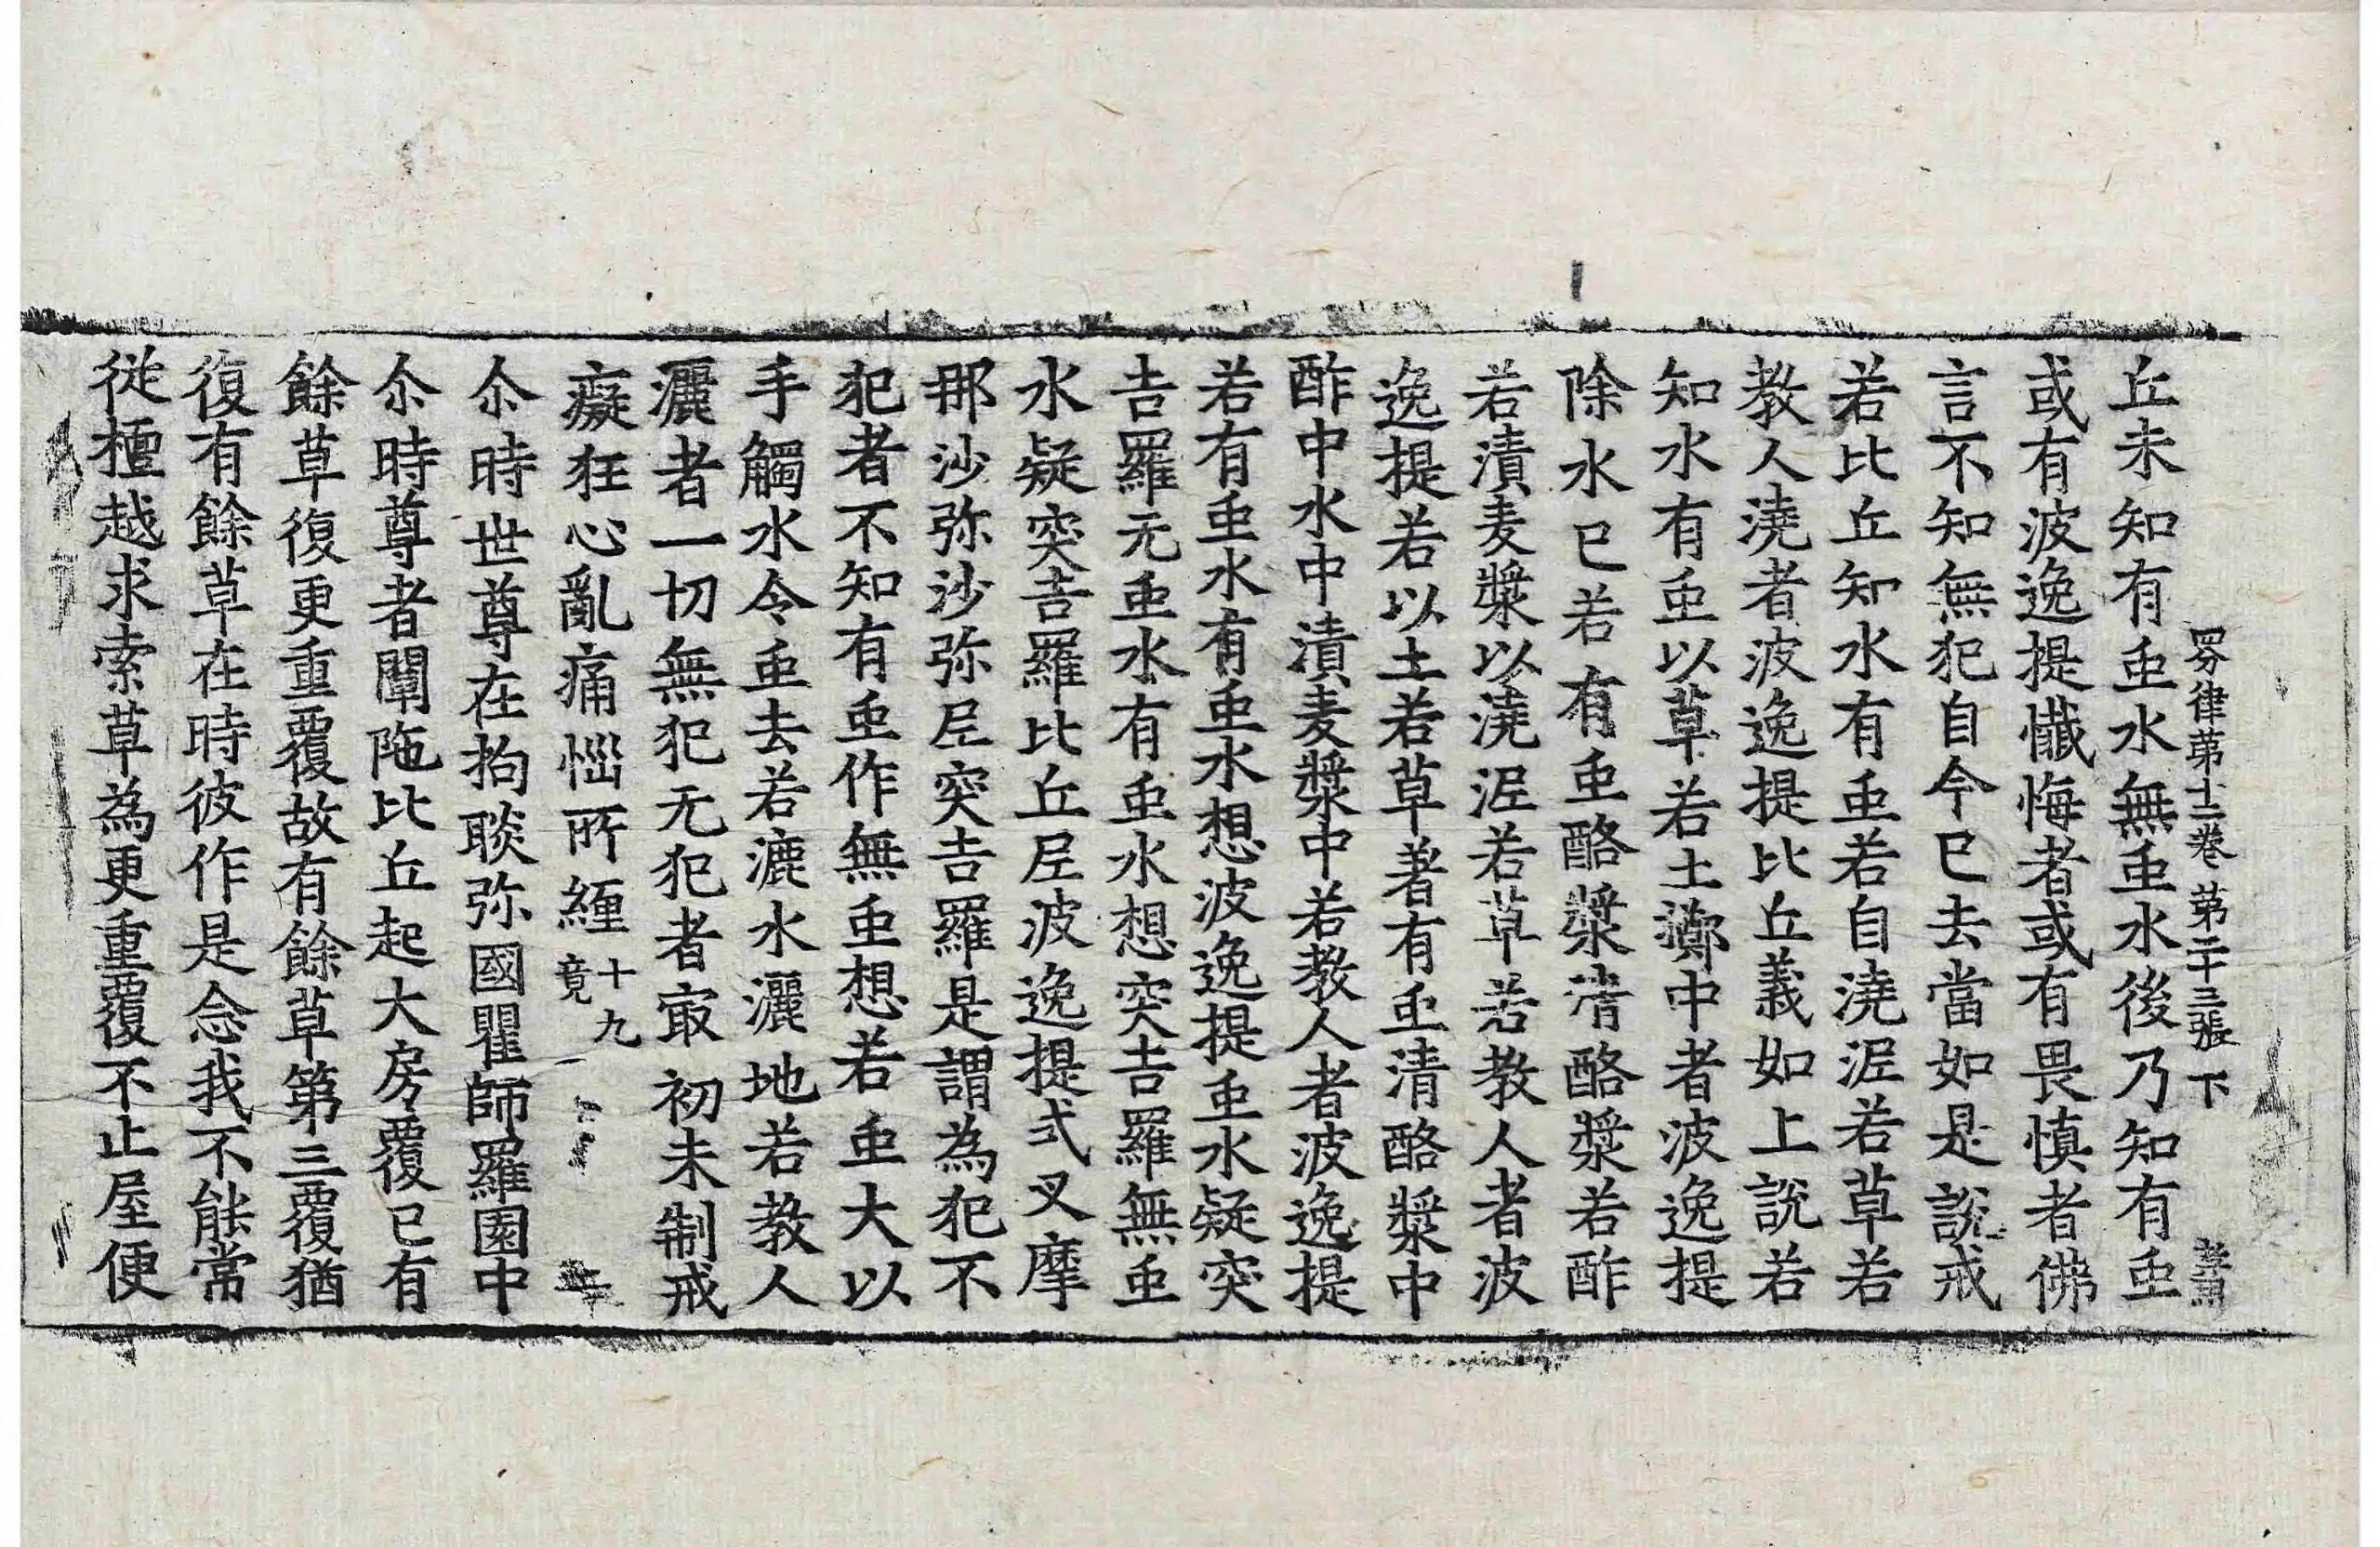 四分律第十二卷 第二十三張 下
丘未知有䖝水無䖝水後乃知有䖝
或有波逸提懺悔者或有畏慎者佛
言不知無犯自今已去當如是說戒
若比丘知水有䖝若自澆泥若草若
教人澆者波逸提比丘義如上說若
知水有䖝以草若土擲中者波逸提
除水已若有䖝酪漿清酪漿若酢
若漬麦漿以澆泥若草若教人者波
逸提若以土若草著有䖝清酪漿中
酢中水中漬麦漿中若教人者波逸提
若有䖝水有䖝水想波逸提䖝水疑突
吉羅无䖝水有䖝水想突吉羅無䖝
水疑突吉羅比丘尼波逸提式叉摩
那沙弥沙弥尼突吉羅是謂為犯不
犯者不知有䖝作無䖝想若䖝大以
手觸水令䖝去若漉水灑地若教人
灑者一切無犯无犯者㝡初未制戒
癡狂心亂痛惱所纏十九竟
尒時世尊在拘睒弥國瞿師羅園中
尒時尊者闡陁比丘起大房覆已有
餘草復更重覆故有餘草第三覆猶
復有餘草在時彼作是念我不能常
從檀越求索草為更重覆不止屋便